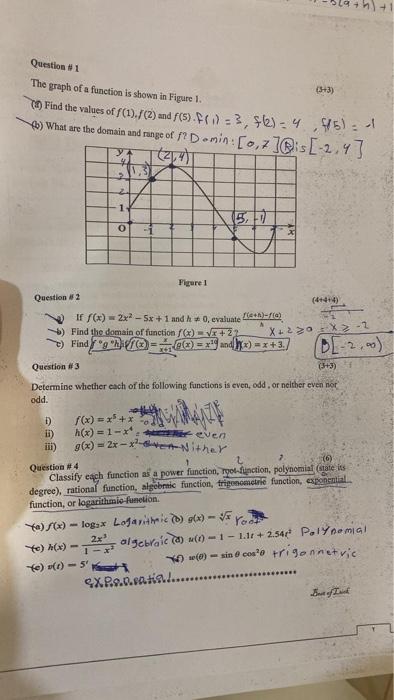 -5(a+h)+1
Question # 1
The graph of a function is shown in Figure 1. (3+3)
(a) Find the values of f(1), f(2) and f(5). f(1) = 3, f(2) = 4, f(5) = -1
(b) What are the domain and range of f? Domin: [0,7] R is [-2,4]
y
4
(2,4)
(1,3)
2
1
0
1
(5,-1)
x
Figure 1
Question # 2 (4+4+4)
a) If f(x) = 2x² − 5x + 1 and h ≠ 0, evaluate f(a+h)−f(a) / h
b) Find the domain of function f(x) = √x + 2? x+2≥0 = x ≥ -2
c) Find f ∘ g ∘ h if f(x) = x/(x+1), g(x) = x¹⁰ and h(x) = x + 3. D[-2,∞)
Question # 3 (3+3)
Determine whether each of the following functions is even, odd, or neither even nor
odd.
i) f(x) = x⁵ + x odd
ii) h(x) = 1 − x⁴ even
iii) g(x) = 2x − x² Nither
Question # 4 (6)
Classify each function as a power function, root function, polynomial (state its
degree), rational function, algebraic function, trigonometric function, exponential
function, or logarithmic function.
(a) f(x) = log₂x Logarithmic (b) g(x) = ∜x root
(c) h(x) = 2x³/(1 − x²) algebraic (d) u(t) = 1 − 1.1t + 2.54t² Polynomial
(e) v(t) = 5ᵗ (f) w(θ) = sin θ cos²θ trigonnetric
exponential
Best of Luck